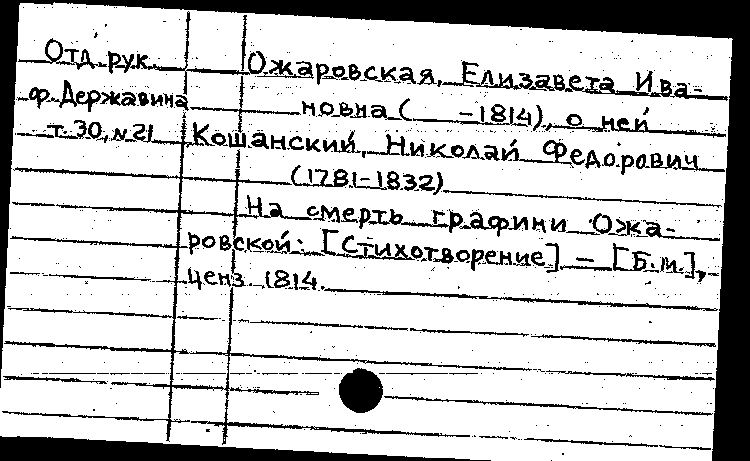 Отд. рук.
ф. Державина
т. 30, № 21
Ожаровская, Елизавета Ива-
новна ( -1814), о ней
Кошанский, Николай Федорович
(1781-1832)
На смерть графини Ожа-
ровской: [Стихотворение]. - [Б.м.],
ценз 1814.